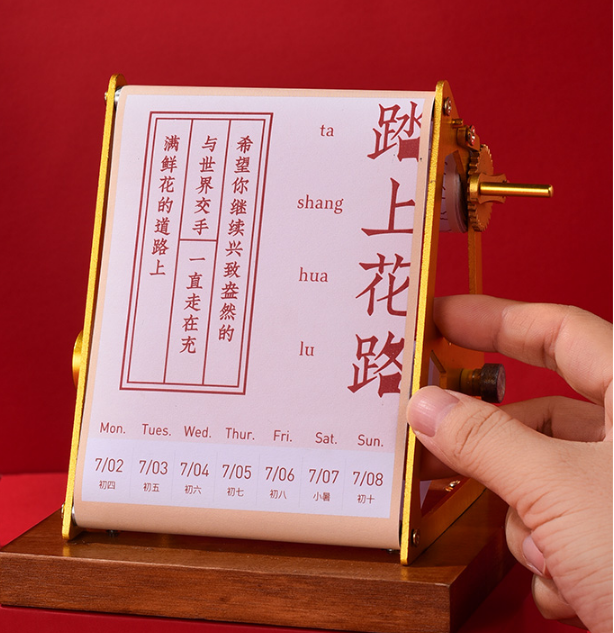 踏上花路
ta
shang
hua
lu
希望你继续兴致盎然的
与世界交手 一直走在充
满鲜花的道路上
Mon. Tues. Wed. Thur. Fri. Sat. Sun.
7/02 7/03 7/04 7/05 7/06 7/07 7/08
初四 初五 初六 初七 初八 小暑 初十